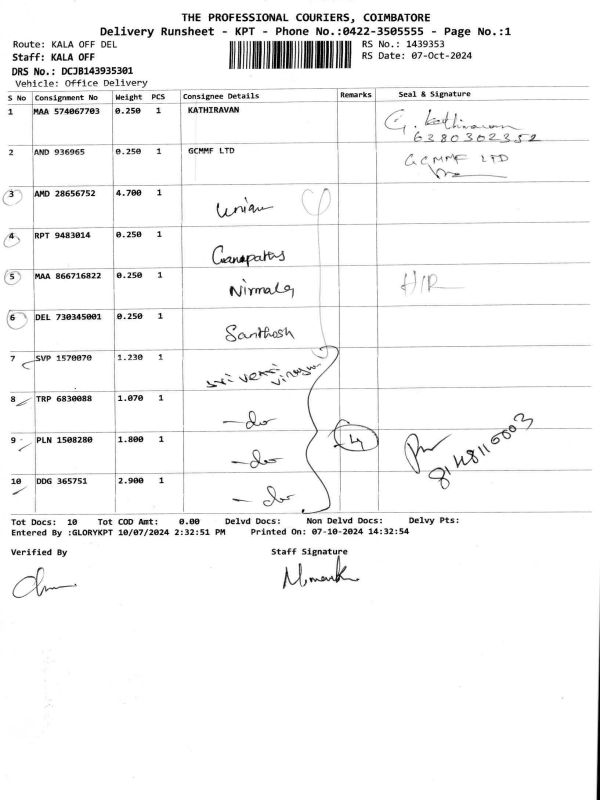 THE PROFESSIONAL COURIERS, COIMBATORE
Delivery Runsheet - KPT - Phone No.:0422-3505555 - Page No.:1
Route: KALA OFF DEL
RS No.: 1439353
Staff: KALA OFF
RS Date: 07-Oct-2024
DRS No.: DCJB143935301
Vehicle: Office Delivery
S No Consignment No Weight PCS Consignee Details Remarks Seal & Signature
1 MAA 574067703 0.250 1 KATHIRAVAN G. Kathiravan
6380302352
2 AND 936965 0.250 1 GCMMF LTD GCMMF LTD
3 AMD 28656752 4.700 1
4 RPT 9483014 0.250 1 Ganapathy
5 MAA 866716822 0.250 1 Nirmala H/R
6 DEL 730345001 0.250 1 Santhosh
7 SVP 1570070 1.230 1 Sri
8 TRP 6830088 1.070 1 -do
9 PLN 1508280 1.800 1 -do 4
10 DDG 365751 2.900 1 -do
Tot Docs: 10 Tot COD Amt: 0.00 Delvd Docs: Non Delvd Docs: Delvy Pts:
Entered By :GLORYKPT 10/07/2024 2:32:51 PM Printed On: 07-10-2024 14:32:54
Verified By Staff Signature